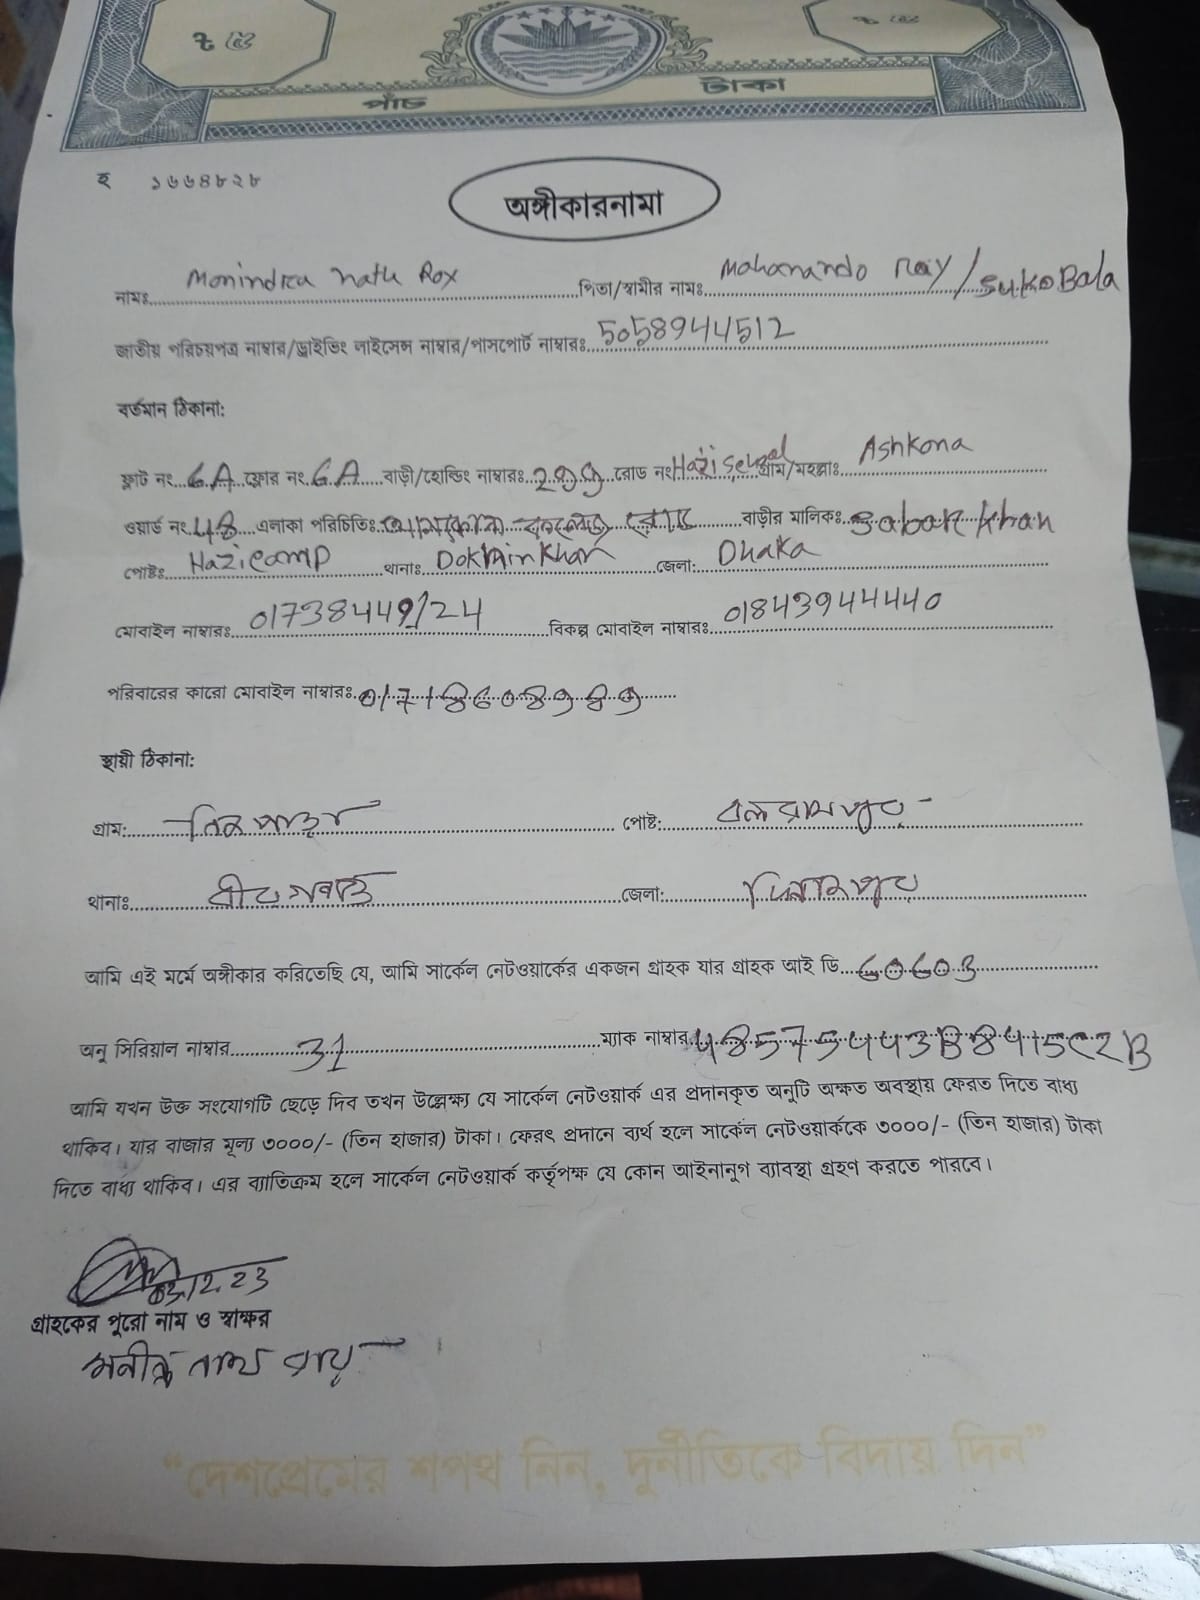 ৳ ৫
৳ ৫
পাঁচ টাকা
হ ১৬৬৪৮২৮
অঙ্গীকারনামা
নামঃ Monindra nath Roy পিতা/স্বামীর নামঃ Mohanando Roy/Suko Bala
জাতীয় পরিচয়পত্র নাম্বার/ড্রাইভিং লাইসেন্স নাম্বার/পাসপোর্ট নাম্বারঃ 5058944512
বর্তমান ঠিকানা:
ফ্লাট নং 6A ফ্লোর নং 6A বাড়ী/হোল্ডিং নাম্বারঃ 299 রোড নং Hazi গ্রাম/মহল্লাঃ Ashkona
ওয়ার্ড নং 48 এলাকা পরিচিতিঃ রোড বাড়ীর মালিকঃ Khan
পোষ্টঃ Hazi camp থানাঃ Dokhin Khan জেলা: Dhaka
মোবাইল নাম্বারঃ বিকল্প মোবাইল নাম্বারঃ 01843944440
পরিবারের কারো মোবাইল নাম্বারঃ 01718608989
স্থায়ী ঠিকানা:
গ্রাম: পোষ্ট: বলরামপুর
থানাঃ বীরগঞ্জ জেলা: দিনাজপুর
আমি এই মর্মে অঙ্গীকার করিতেছি যে, আমি সার্কেল নেটওয়ার্কের একজন গ্রাহক যার গ্রাহক আই ডি 60603
অনু সিরিয়াল নাম্বার 31 ম্যাক নাম্বার 485754433B8415C2B
আমি যখন উক্ত সংযোগটি ছেড়ে দিব তখন উল্লেক্ষ্য যে সার্কেল নেটওয়ার্ক এর প্রদানকৃত অনুটি অক্ষত অবস্থায় ফেরত দিতে বাধ্য
থাকিব। যার বাজার মূল্য ৩০০০/- (তিন হাজার) টাকা। ফেরৎ প্রদানে ব্যর্থ হলে সার্কেল নেটওয়ার্ককে ৩০০০/- (তিন হাজার) টাকা
দিতে বাধ্য থাকিব। এর ব্যাতিক্রম হলে সার্কেল নেটওয়ার্ক কর্তৃপক্ষ যে কোন আইনানুগ ব্যাবস্থা গ্রহণ করতে পারবে।
03.12.23
গ্রাহকের পুরো নাম ও স্বাক্ষর
মনীন্দ্র নাথ রায়
“দেশপ্রেমের শপথ নিন, দুর্নীতিকে বিদায় দিন”